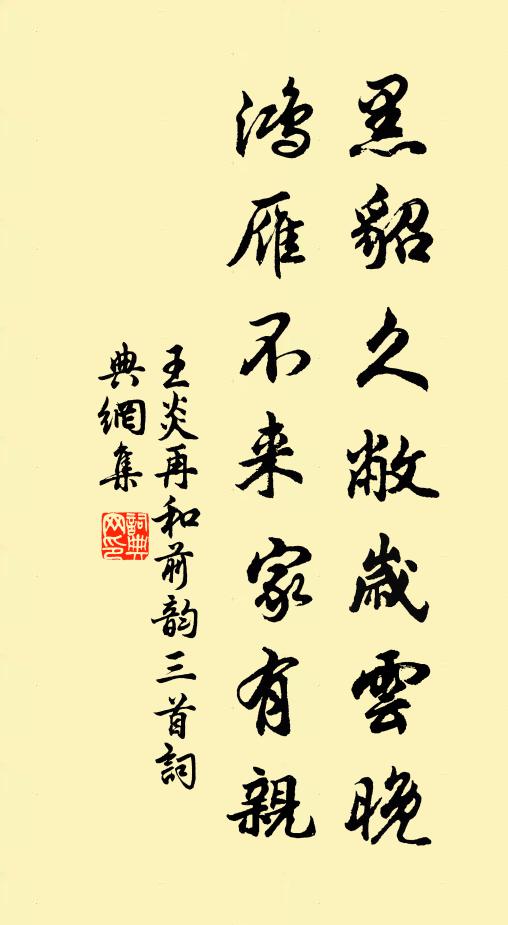 黑貂久敝歲雲晚
鴻雁不来家有親
王炎再和前韵三首詞
典網集
詞典
网印